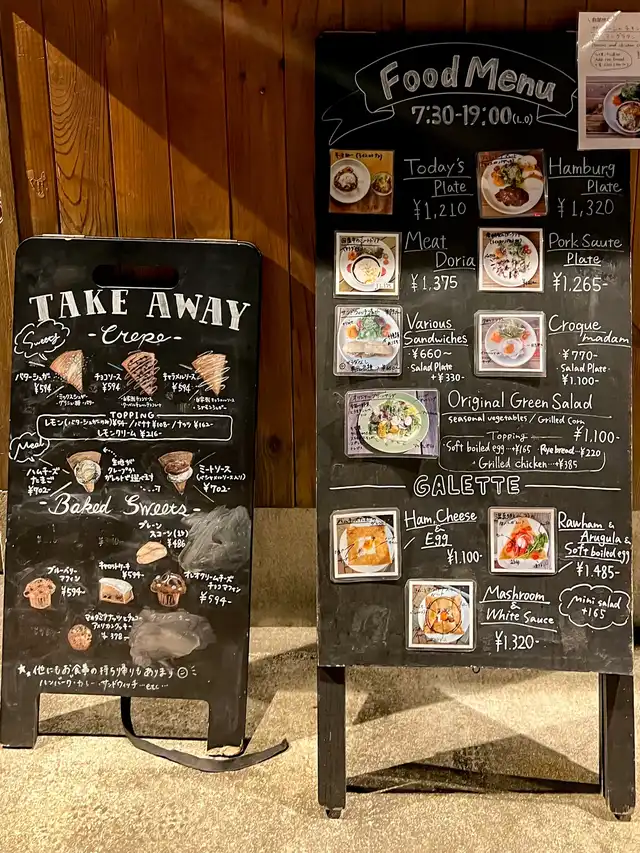 TAKE AWAY
-Crepe-
Sweets
バターシュガー
¥594
チョコソース
¥594
キャラメルソース
¥594
TOPPING
レモン(バターシュガーのみ)¥54-/バナナ¥108-/ナッツ¥162-
レモンクリーム¥216-
Meal
ハムチーズ
たまご
¥702-
生地が
クレープか
ガレットで選べます!
ミートソース
¥702-
-Baked Sweets-
プレーン
スコーン
¥486
ブルーベリー
マフィン
¥594-
キャロットケーキ
¥594-
クリームチーズ
チョコマフィン
¥594-
マカダミアナッツとチョコ
アメリカンクッキー
¥378-
★他にもお食事の持ち帰りもあります
ハンバーグ・カレー・サンドウィッチ…etc…
Food Menu
7:30-19:00(L.O)
Today's
Plate
¥1,210
Hamburg
Plate
¥1,320
Meat
Doria
¥1,375
Pork Saute
Plate
¥1,265-
Various
Sandwiches
¥660~
Salad Plate
+¥330-
Croque
madam
¥770-
Salad Plate
¥1,100-
Original Green Salad
seasonal vegetables / Grilled Corn
¥1,100-
Topping
Soft boiled egg…+¥165 Rye bread…¥220
Grilled chicken…+¥385
GALETTE
Ham, Cheese
&
Egg
¥1,100-
Rawham &
Arugula &
Soft boiled egg
¥1,485-
Mashroom
&
White Sauce
¥1,320-
mini salad
+165